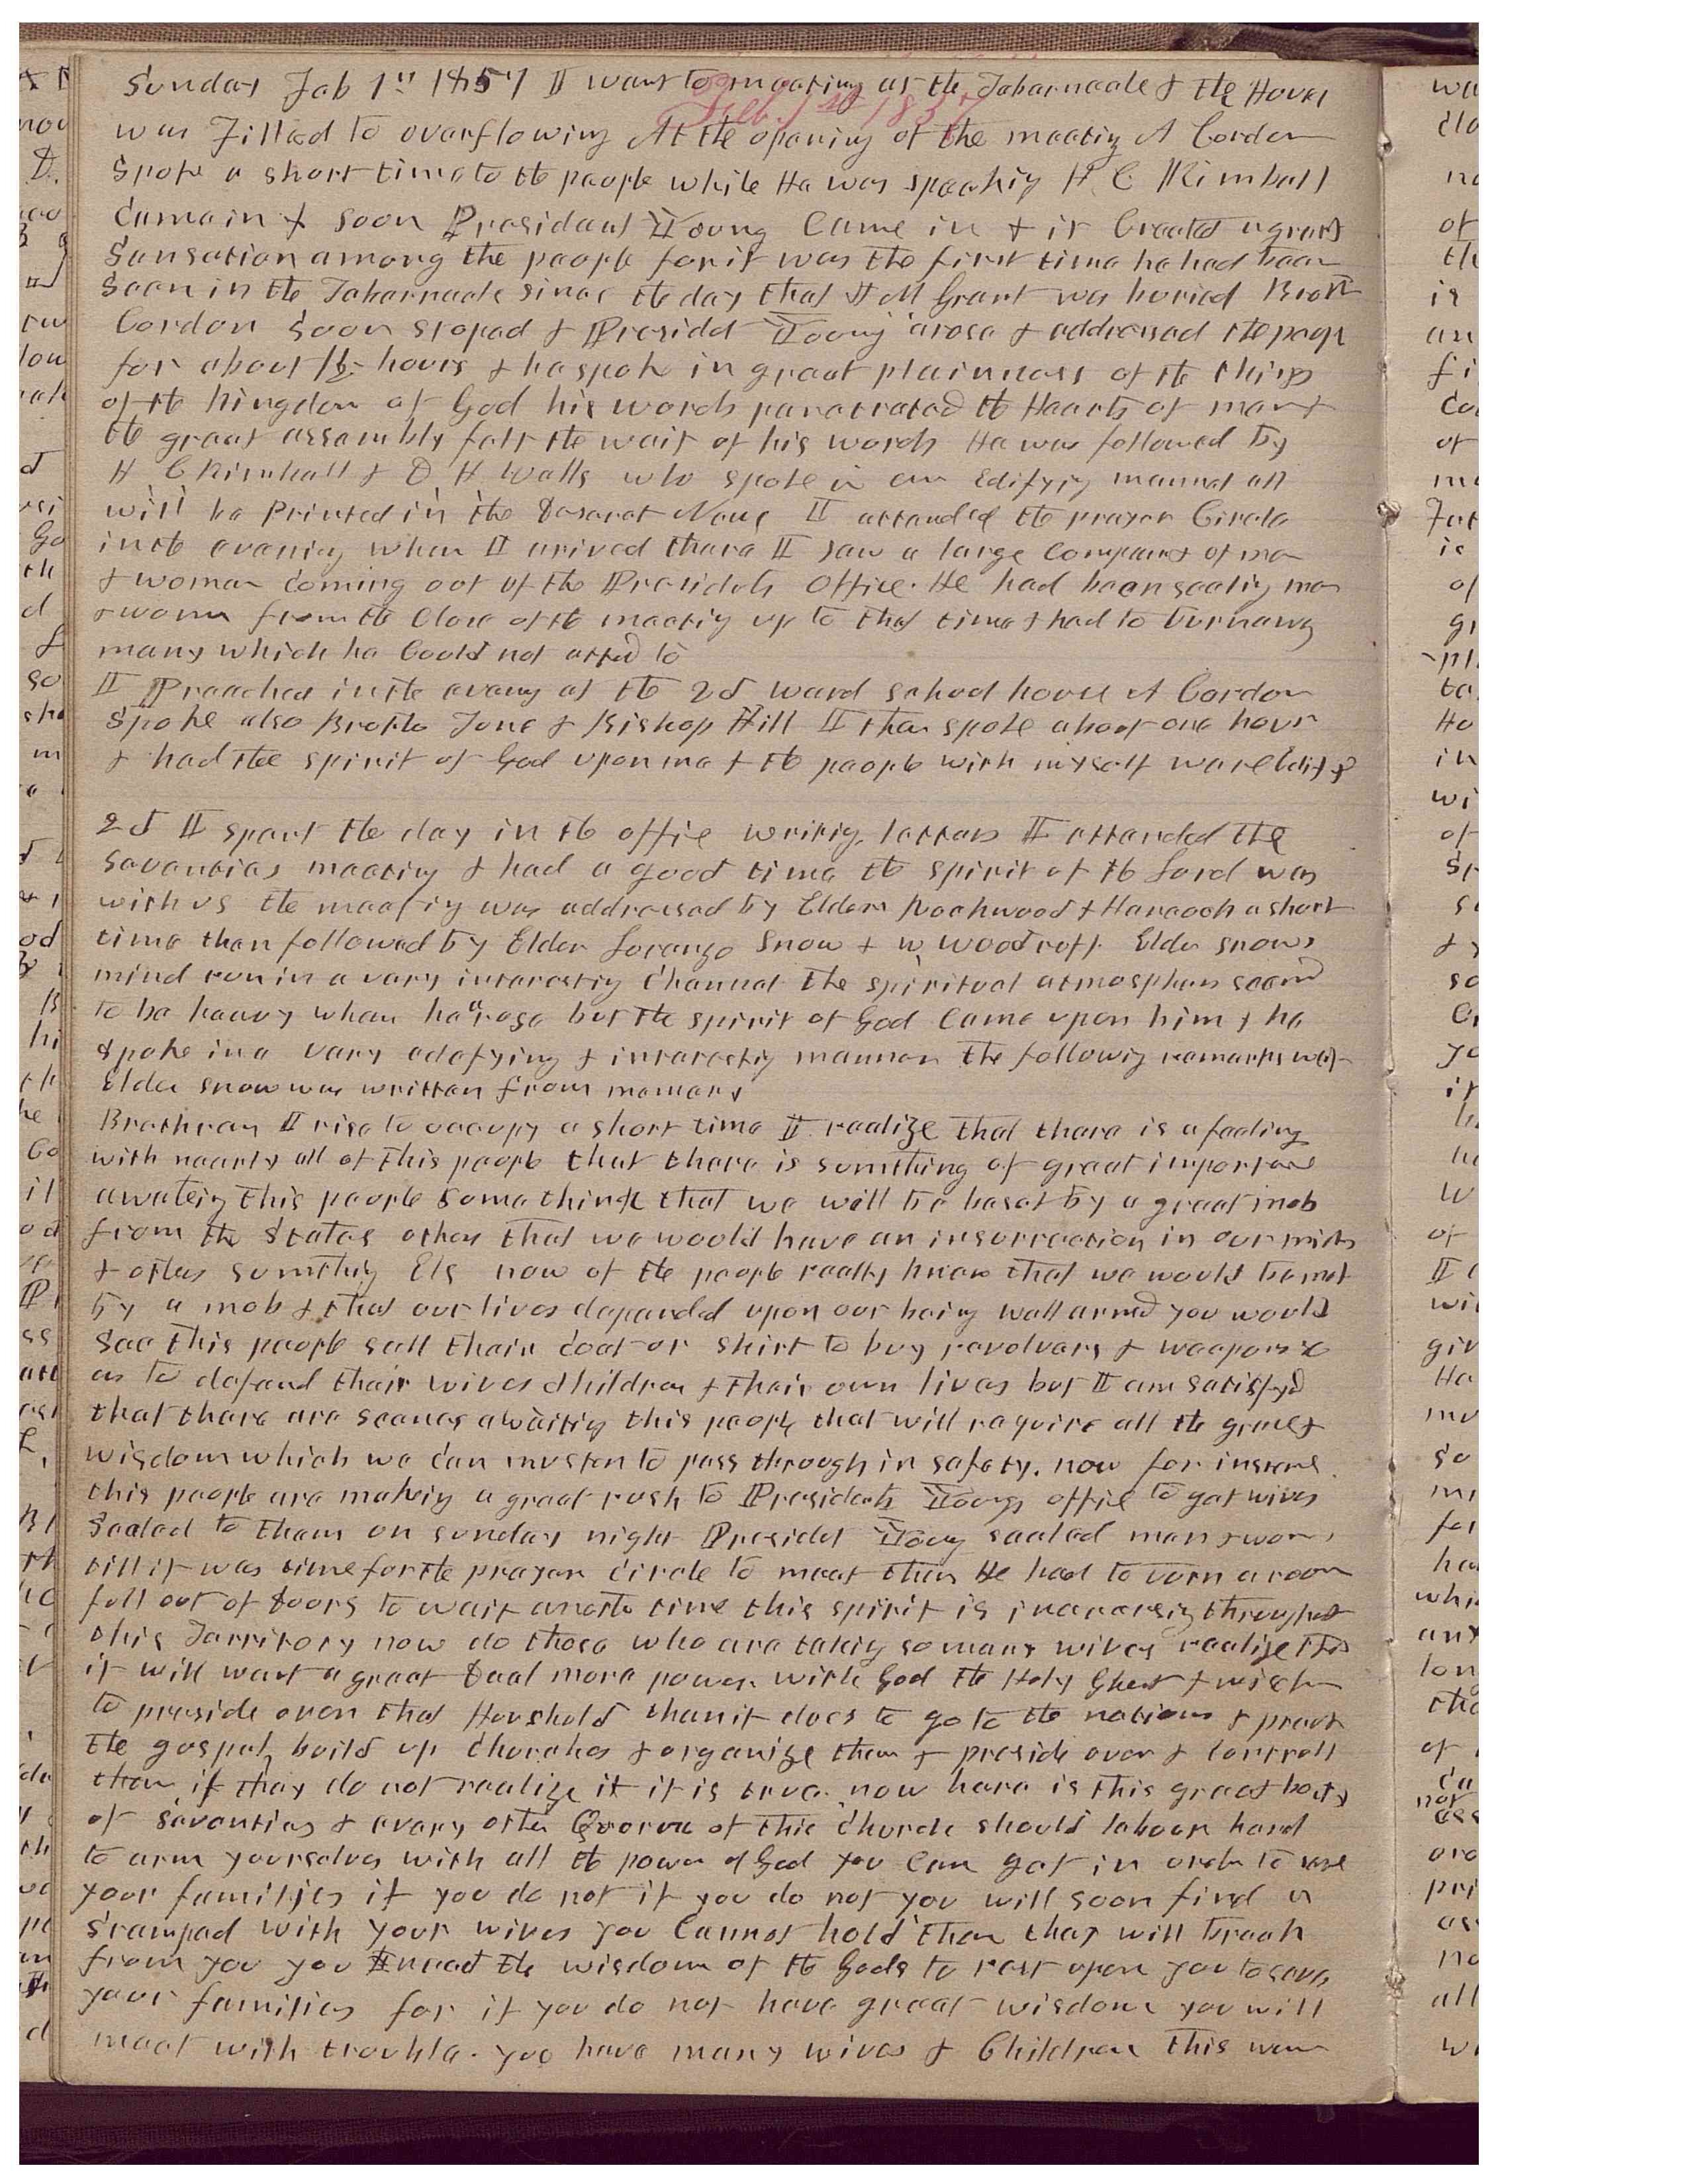 Sunday Feb 1st 1857 I went to meeting at the Tabernacle & the House
Feb. 1st 1857
was Filled to overflowing At the opening of the meeting A Cordon
Spoke a short time to the people while He was speaking H C Kimball
Came in & soon President Young Came in & it Created a great
Sensation among the people for it was the first time he had been
Seen in the Tabernacle since the day that J M Grant was buried Broth
Cordon soon stoped & Presidet Young arose & addressed the people
for about 1½ hours & he spoke in great plainness of the things
of the Kingdom of God his words penetrated the Hearts of men &
the great assembly felt the wait of his words He was followed by
H C Kimball & D H Wells who spoke in an Edifying manner all
will be Printed in the Deseret News I attended the prayer Circle
in the evening when I arived there I saw a large Company of men
& women coming out of the Presidets Office. He had been sealing men
& women from the Close of the meeting up to that time & had to turn away
many which he Could not attend to
I Preached in the evening at the 2d ward school house A Cordon
Spoke also Brother Jone & Bishop Hill I then spoke about one hour
& had the spirit of God upon me & the people with myself were Edify
2d I spent the day in the office writing letters I attended the
Seventies meeting & had a good time the spirit of the Lord was
with us the meeting was addressed by Elders Rockwood & Hancock a short
time then followed by Elder Lorenzo Snow & W Woodruff. Elder Snows
mind run in a very interesting Channel the spiritual atmosphere seemd
to be heavy when he arose but the spirit of God Came upon him & he
spoke in a very edefying & interesting manner the following remarks was
Elder Snow was written from memory
Brethren I rise to occupy a short time I realize that there is a feeling
with nearly all of this people that there is something of great importance
awateing this people some think that we will be beset by a great mob
from the States others that we would have an insurrection in our midst
& others sumthing Els now of the people really knew that we would be met
by a mob & that our lives depended upon our being well armed you would
see this people sell their coat or shirt to buy revolvers & weapons so
as to defend their wives children & their own lives but I am satisfyed
that there are scenes awaiting this people that will require all the grace &
wisdom which we can muster to pass through in safety. now for instane
this people are making a great rush to Presidents Youngs office to get wives
Sealed to them on sunday night Presidet Young sealed men & women
till it was time for the prayer circle to meet then He had to turn a room
full out of Doors to wait another time this spirit is increasing throughout
this Territory now do those who are taking so many wives realize that
it will want a great Deal more power with God the Holy Ghost & wisdom
to preside over that Household than it does to go to the nations & preach
the gospel, build up churches & organize them & preside over & Controll
them if they do not realize it it is true. now here is this great body
of Seventies & every other Quorum of this Church should labour hard
to arm yourselves with all the power of God you Can get in order to save
your families if you do not if you do not you will soon find a
Stamped with your wives you Cannot hold them they will break
from you you need the wisdom of the Gods to rest upon you to save
your families for if you do not have great wisdom you will
meet with trouble. you have many wives & Children this